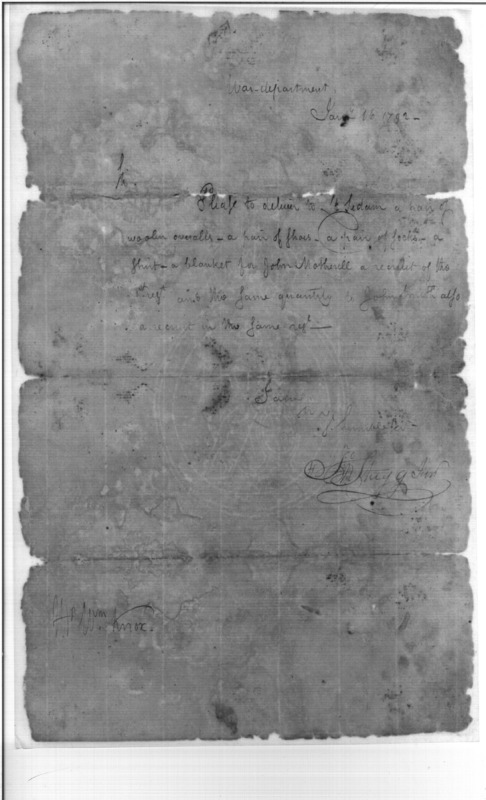 War-department
Jany 16 1792 -
Sir,
Please to deliver to Lt Sedam a pair of
woolen overalls - a pair of shoes - a pair of socks - a
shirt - a blanket for John Motherell a recruit of the
regt and the same quantity to John also
a recruit in the same regt
I am
Sir
Your
Hble Servt
Jn Stagg Junr
Wm Knox.